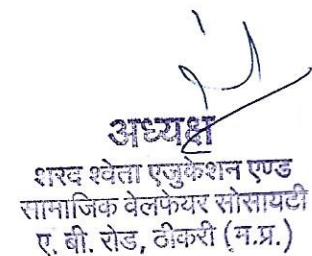 अध्यक्ष
शरद श्वेता एजुकेशन एण्ड
सामाजिक वेलफेयर सोसायटी
ए. बी. रोड, ठीकरी (म.प्र.)